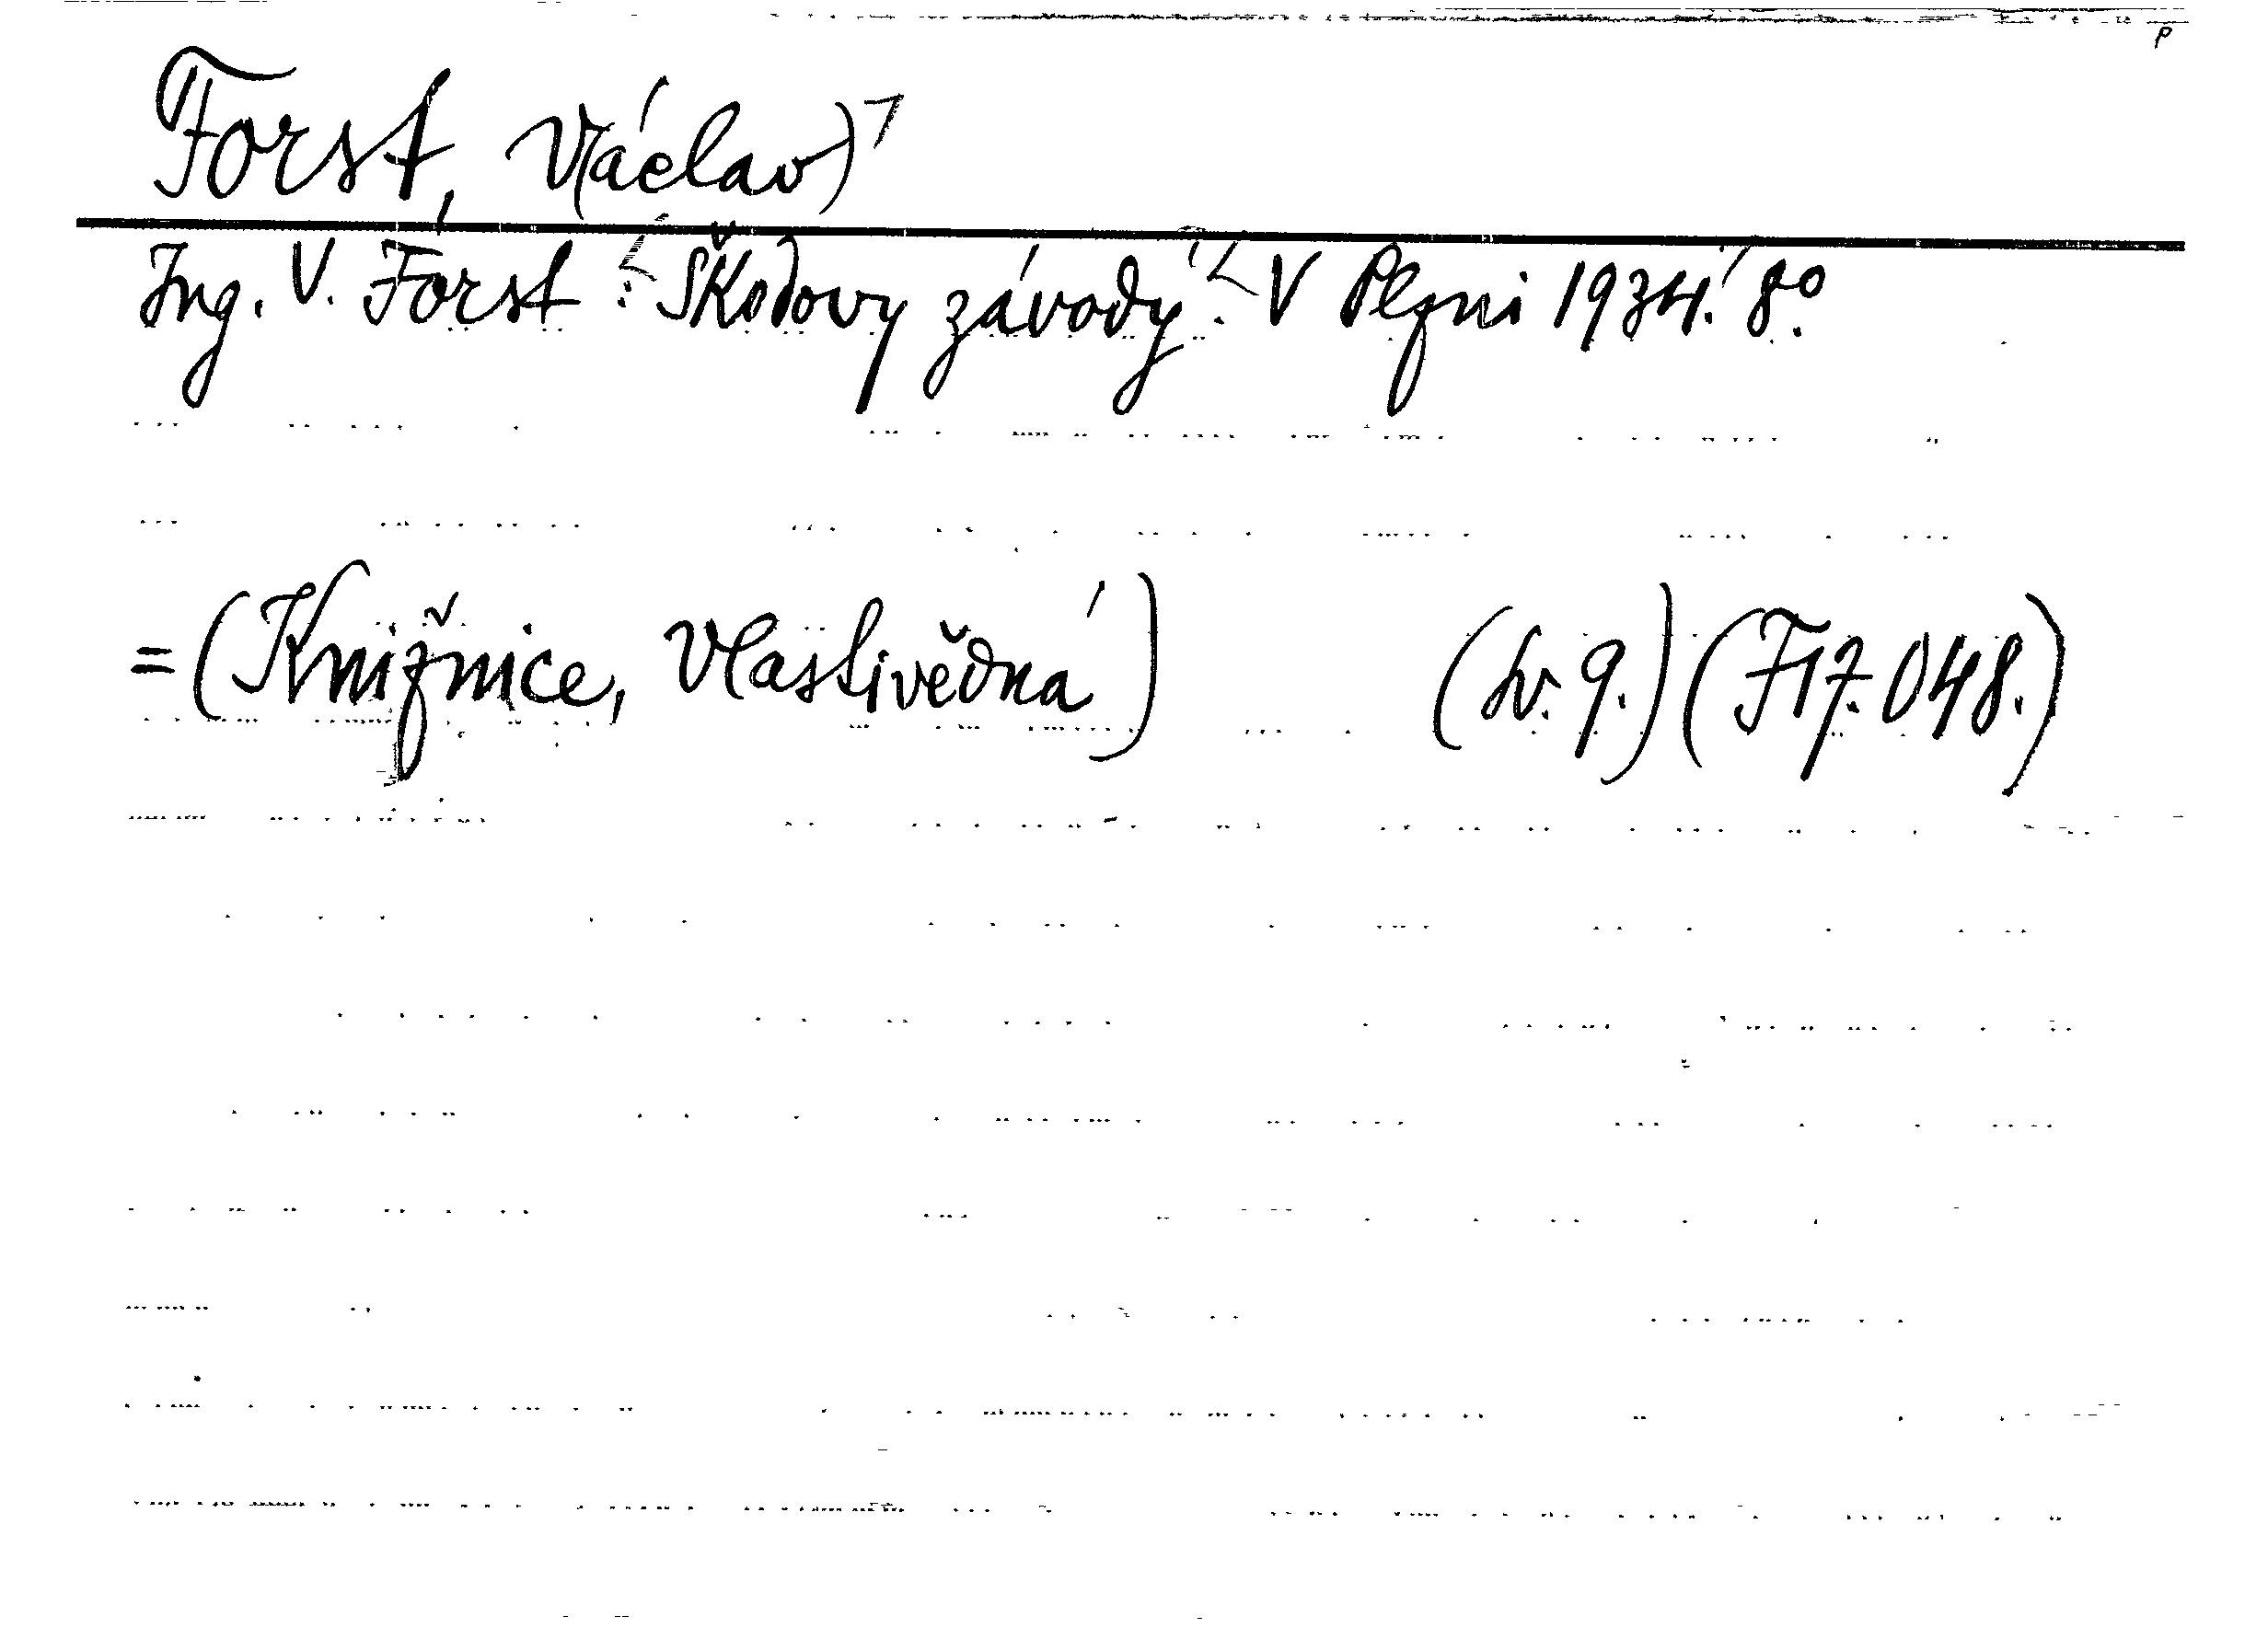 Forst, V(áclav)
Ing. V. Forst: Škodovy závody. V Plzni 1934. 8°.
=(Knižnice, Vlastivědná) (sv. 9.) (F17.048.)